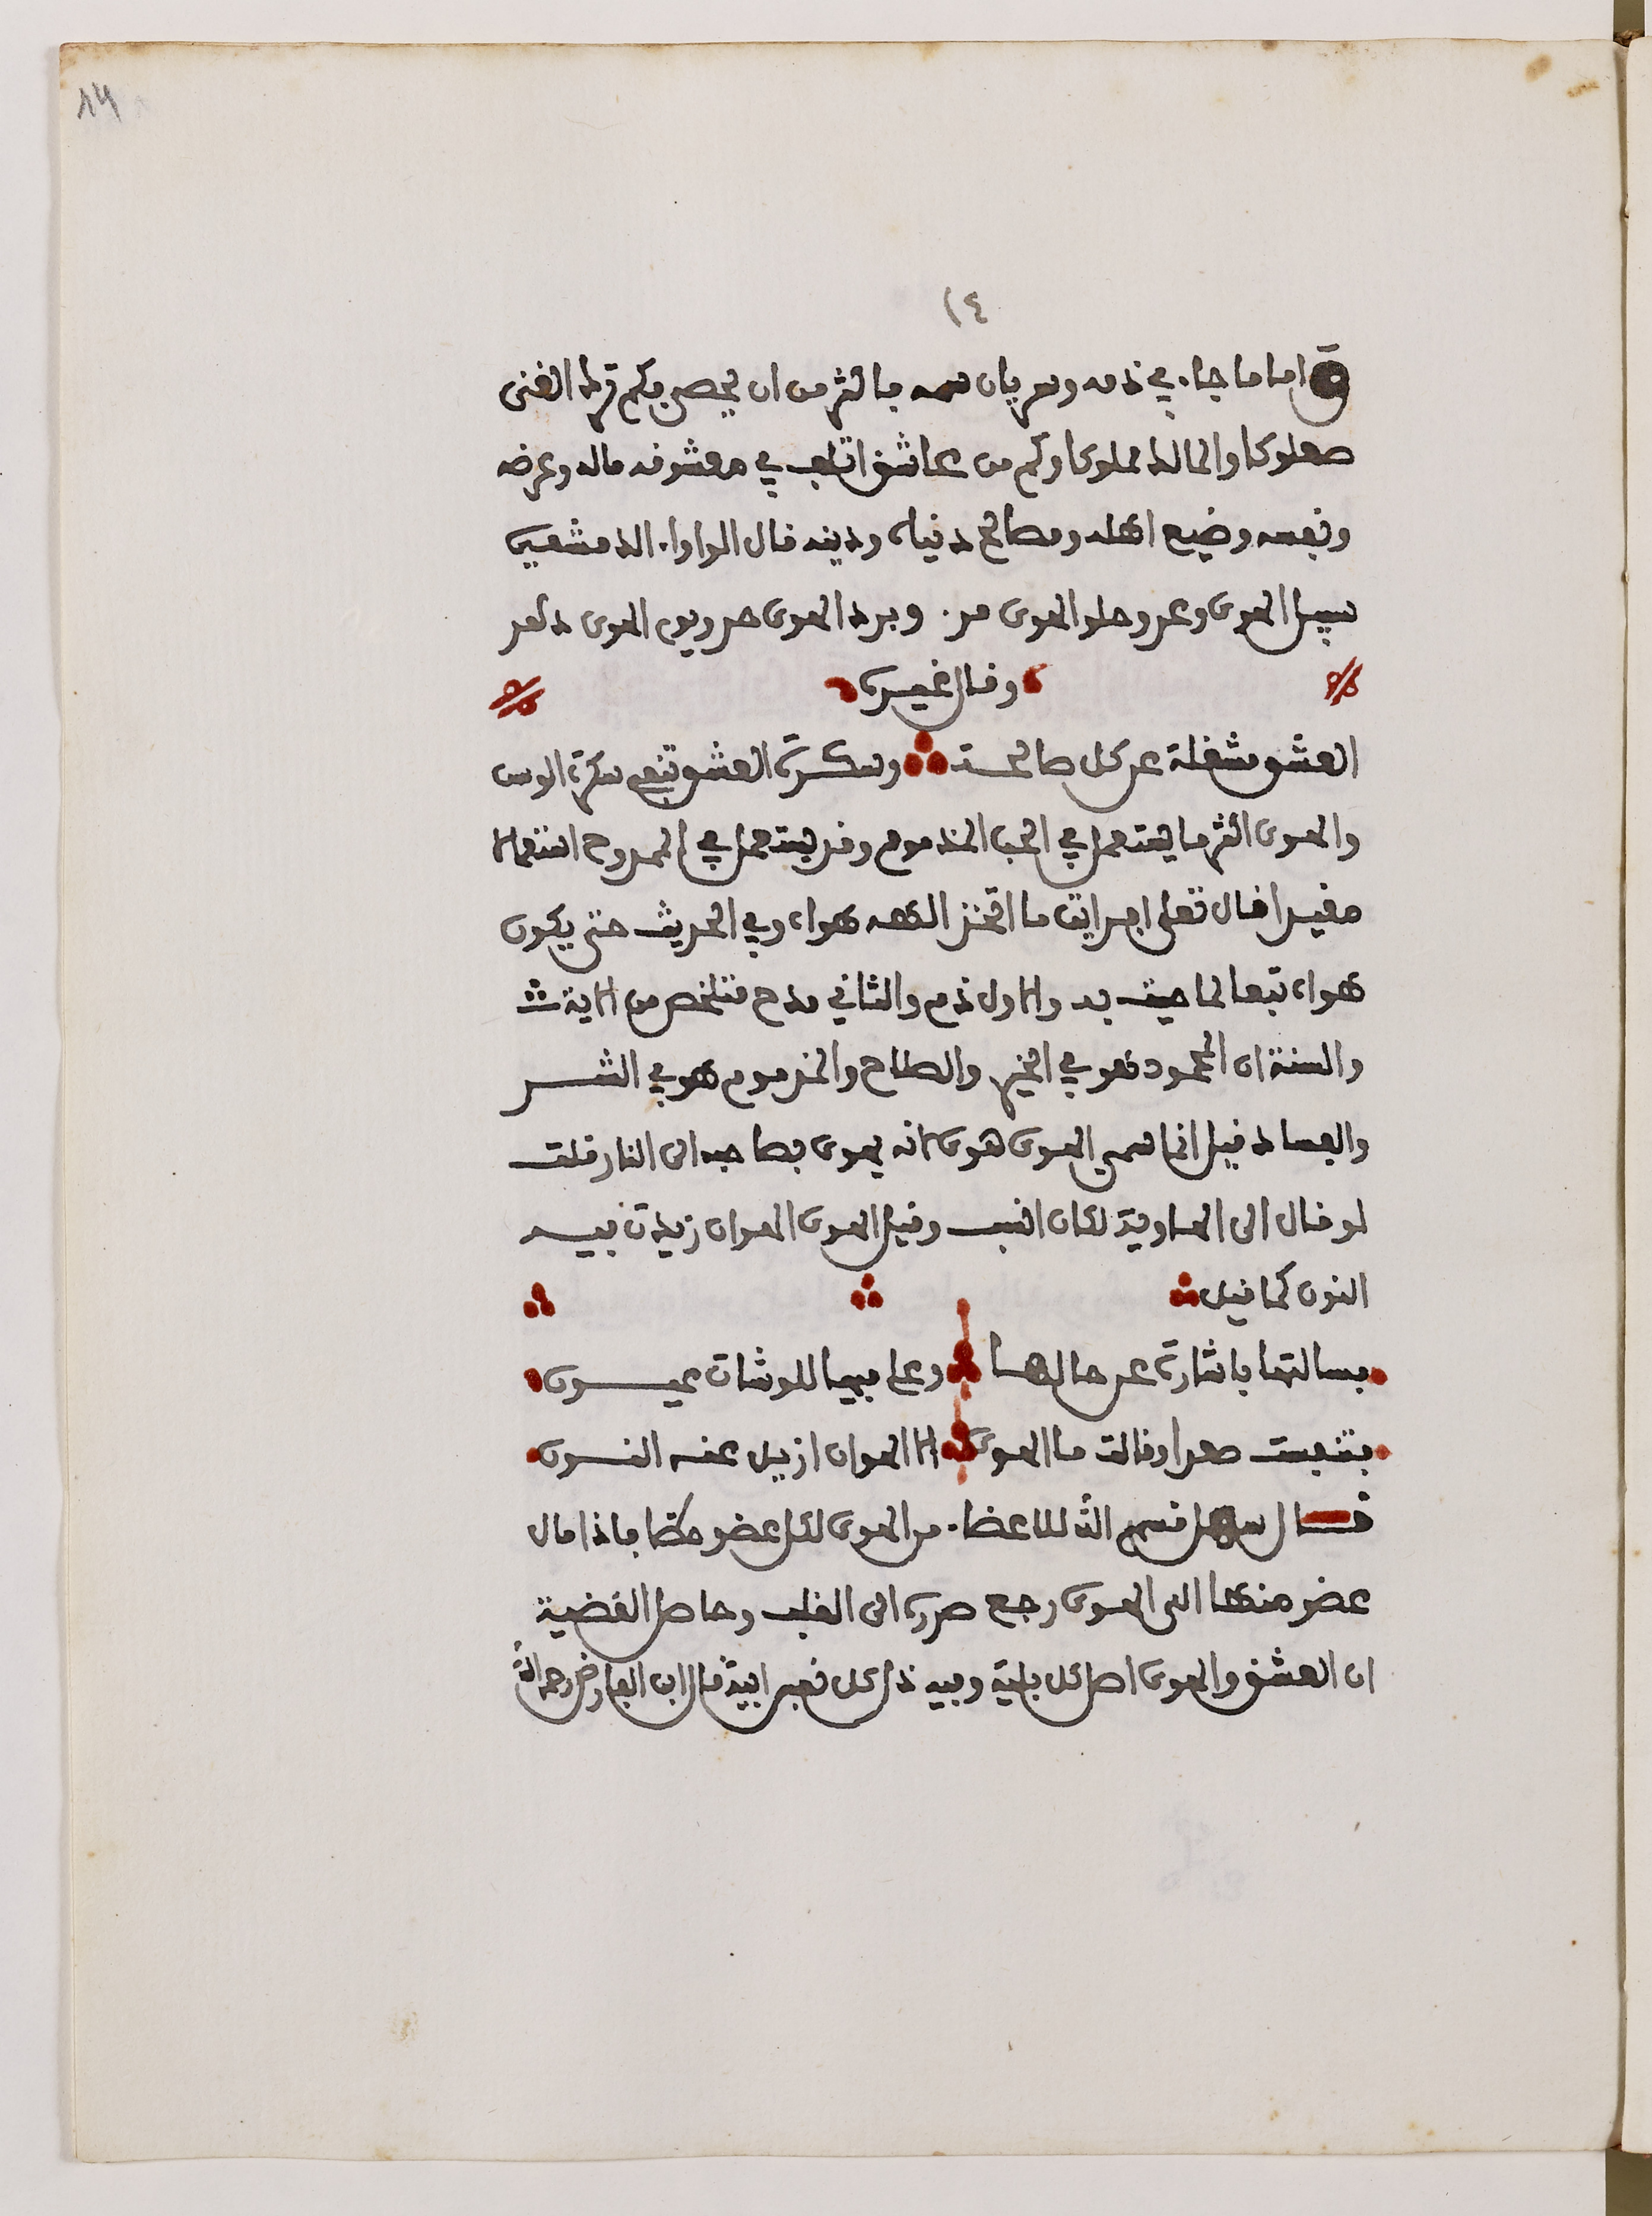 ١٤
١٤
واما ما جاء في ذمه وتعريان سمه فاكثر من ان يحصى فكم ترك الغنى
صعلوكا والمالك مملوكا وكم من عاشق اتلف في معشوقه ماله وعرضه
ونفسه وضيع اهله ومصالح دنياه ودينه قال الواواء الدمشقي
سبيل الهوى وعر وحلو الهوى مر وبرد الهوى حر ويوم الهوى دهر
وقال غيره
العشق مشغلة عن كل صالحة وسكرة العشق تنفي سكرة الوسن
والهوى اكثر ما يستعمل في الحب المذموم وقد يستعمل في الممدوح استعمالا
مقيدا قال تعلى افرايت ما اتخذ الاهه هواه وفي الحديث حتى يكون
هواه تبعا لما جيت به والاول ذم والثاني مدح فتلخص من الاية
والسنة ان المحمود فهو في الخير والصلاح والمذموم هو في الشر
والفساد قيل انما سمي الهوى هوى لانه يهوى بصاحبه الى النار قلت
لو قال الى الهاوية لكان انسب وقيل الهوى الهوان زيدت فيه
النون كما قيل
فسالتها باشارة عن حالها وعلي فيها للوشات عيون
فتنفست صعدا وقالت ما الهوى الا الهوان ازيل عنه النون
قال سهل قسم الله للاعضاء من الهوى لكل عضو حظا فاذا مال
عضو منها الى الهوى رجع ضرره الى القلب وحاصل القضية
ان العشق والهوى اصل كل بلية وفيه ذل كل نفس ابية قال ابن الفارض رحمه الله